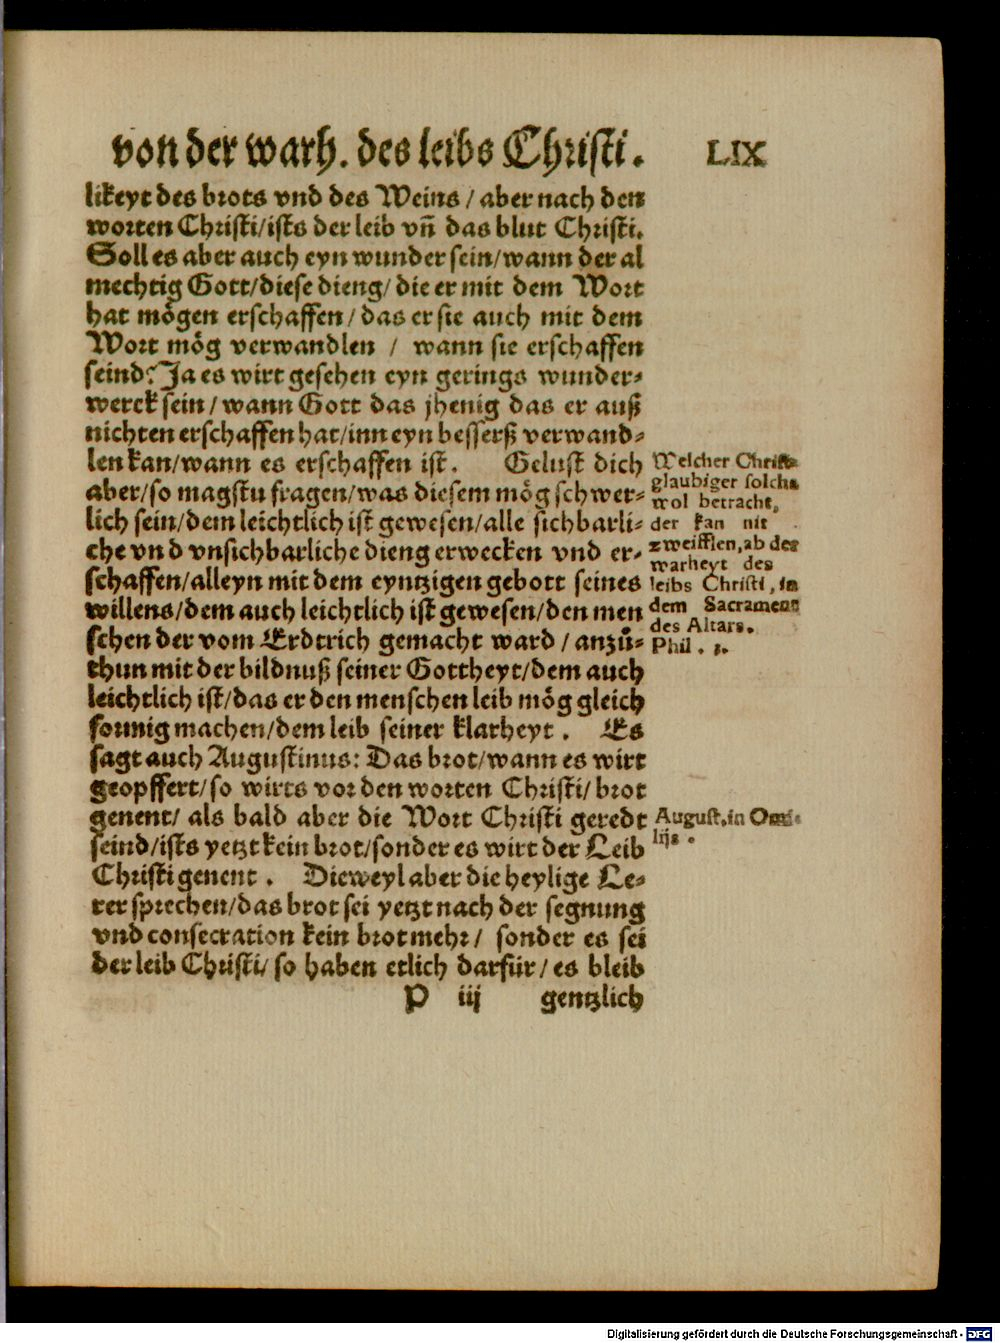 von der warh. des leibs Christi. LIX
likeyt des brots vnd des Weins / aber nach den
worten Christi/ists der leib vñ das blut Christi.
Soll es aber auch eyn wunder sein/wann der al
mechtig Gott/diese dieng/ die er mit dem Wort
hat mögen erschaffen / das er sie auch mit dem
Wort mög verwandlen / wann sie erschaffen
seind? Ja es wirt gesehen eyn gerings wunder-
werck sein / wann Gott das jhenig das er auß
nichten erschaffen hat/inn eyn besserß verwand-
len kan/wann es erschaffen ist. Gelust dich
aber/so magstu fragen/was diesem mög schwer-
lich sein/dem leichtlich ist gewesen/alle sichbarli-
che vnd vnsichbarliche dieng erwecken vnd er-
schaffen/alleyn mit dem eyntzigen gebott seines
willens/dem auch leichtlich ist gewesen/den men
schen der vom Erdtrich gemacht ward / anzů-
thun mit der bildnuß seiner Gottheyt/dem auch
leichtlich ist/das er den menschen leib mög gleich
formig machen/dem leib seiner klarheyt. Es
sagt auch Augustinus: Das brot/wann es wirt
geopffert/so wirts vor den worten Christi/ brot
genent/ als bald aber die Wort Christi geredt
seind/ists yetzt kein brot/sonder es wirt der Leib
Christi genent. Dieweyl aber die heylige Le-
rer sprechen/das brot sei yetzt nach der segnung
vnd consecration kein brot mehr/ sonder es sei
der leib Christi/ so haben etlich darfür/ es bleib
P iij gentzlich
Welcher Christ-
glaubiger solchs
wol betracht,
der kan nit
zweifflen, ab der
warheyt des
leibs Christi, in
dem Sacrament
des Altars.
Phil. 3.
August. in Ome-
lijs.
Digitalisierung gefördert durch die Deutsche Forschungsgemeinschaft - DFG